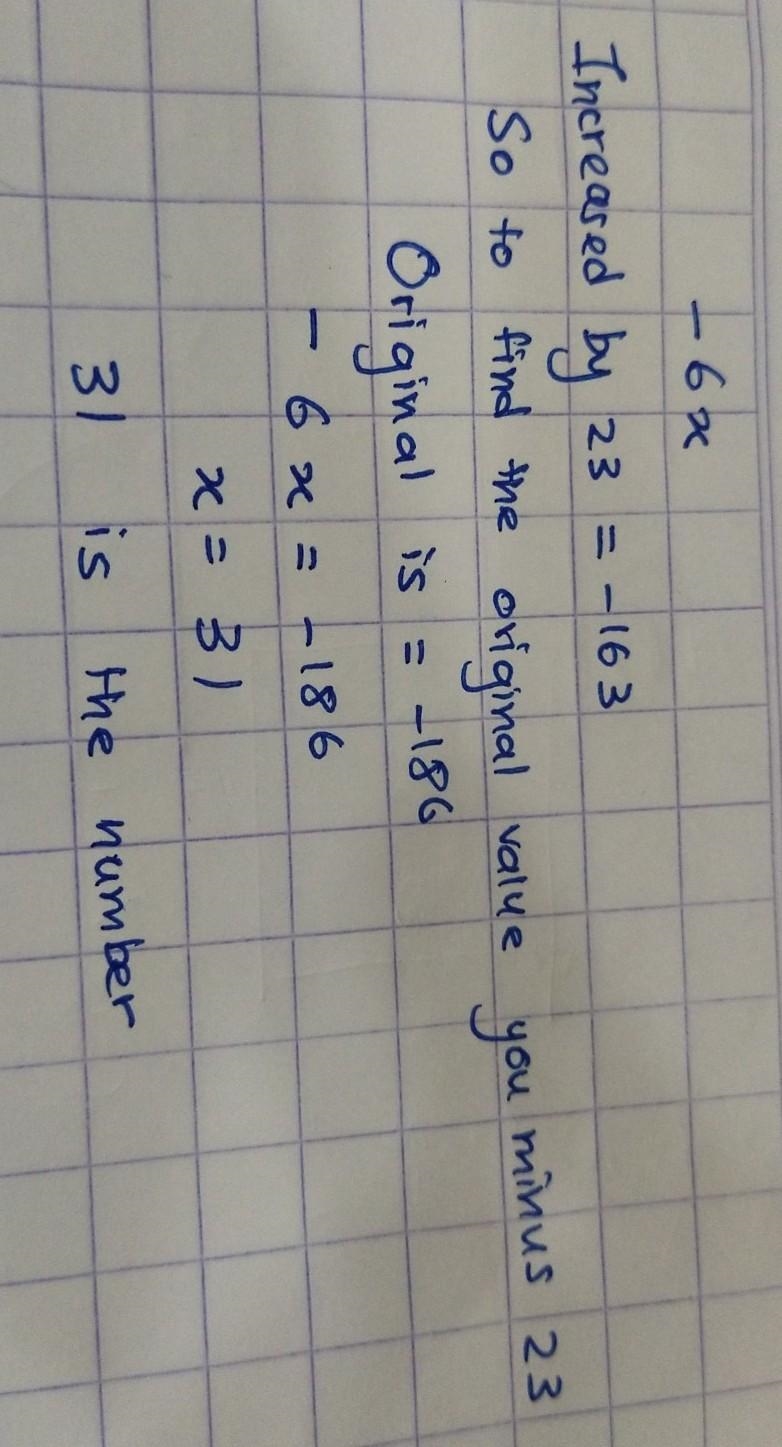 -6x
Increased by 23 = -163
So to find the original value you minus 23
Original is = -186
-6x = -186
x = 31
31 is the number